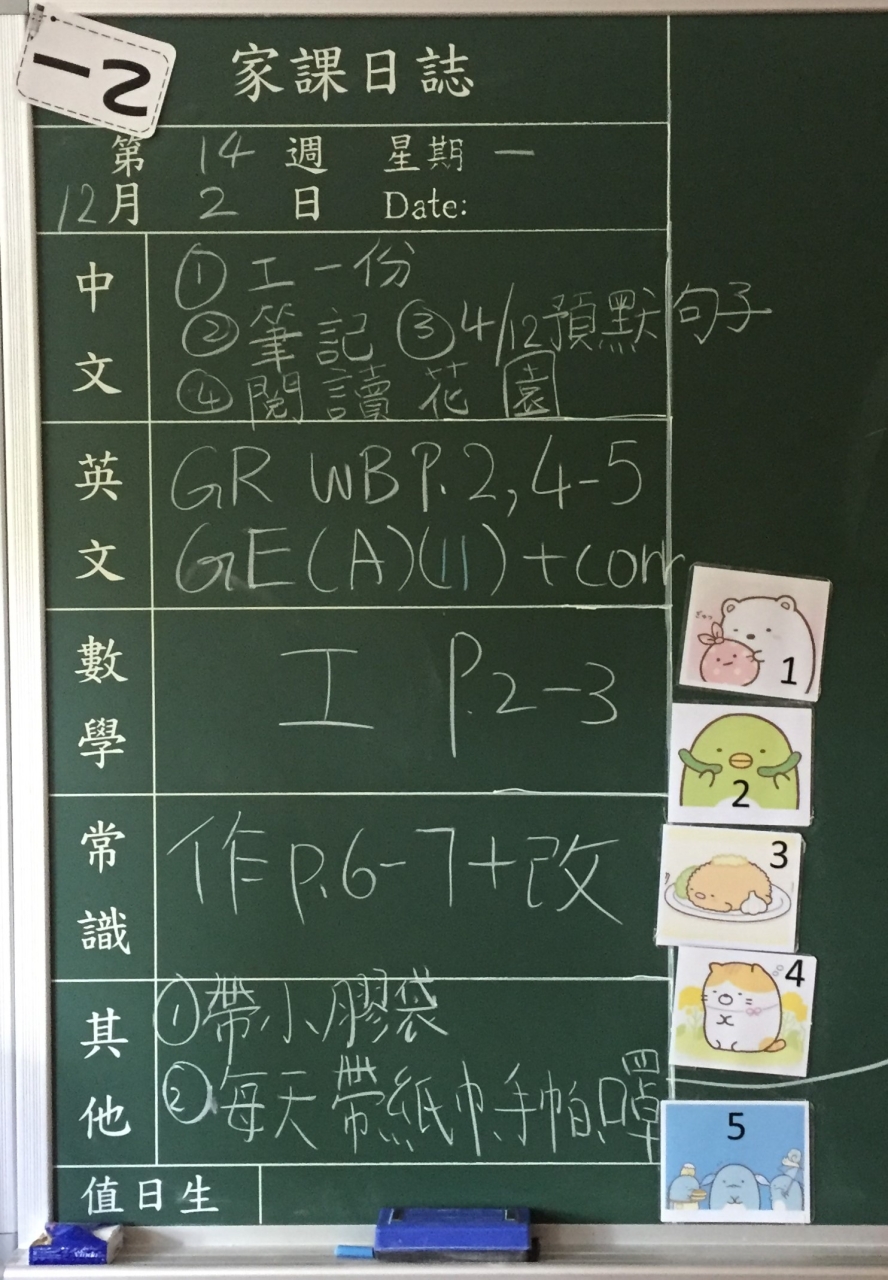 家課日誌
第 14 週 星期 一
12月 2 日 Date:
中文
① 工一份
② 筆記 ③ 4/12預默句子
④ 閱讀花園
英文
GR WB P.2, 4-5
GE(A)(11)+corr
數學
工 P.2-3
常識
作 p.6-7+改
其他
① 帶小膠袋
② 每天帶紙巾、手帕、口罩
值日生
1
2
3
4
5